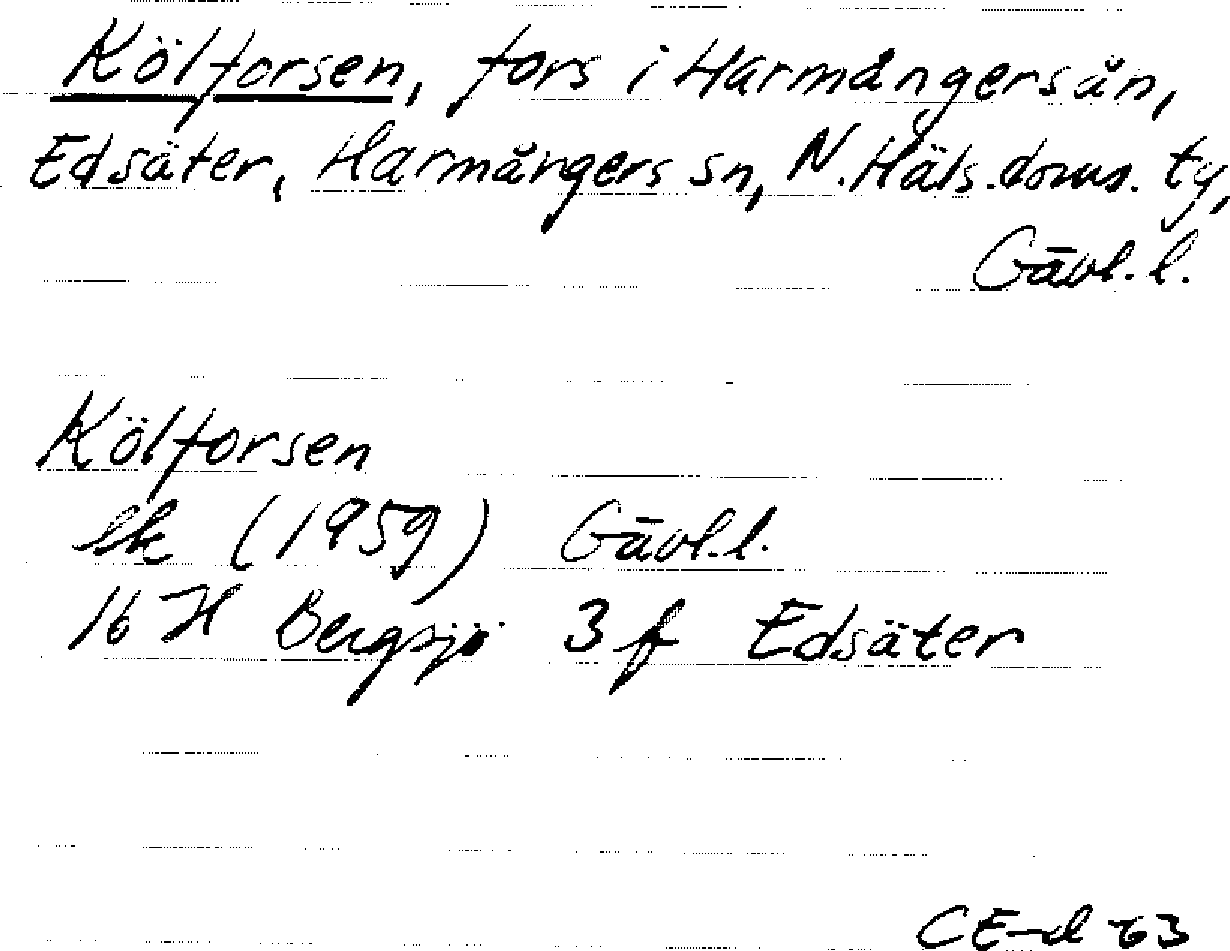 Kölforsen, fors i Harmångersån,
Edsäter, Harmångers sn, N. Häls. doms. ty,
Gävl. l.
Kölforsen
ek (1959) Gävl. l.
16 H Bergsjö 3 f Edsäter
CE-d 63